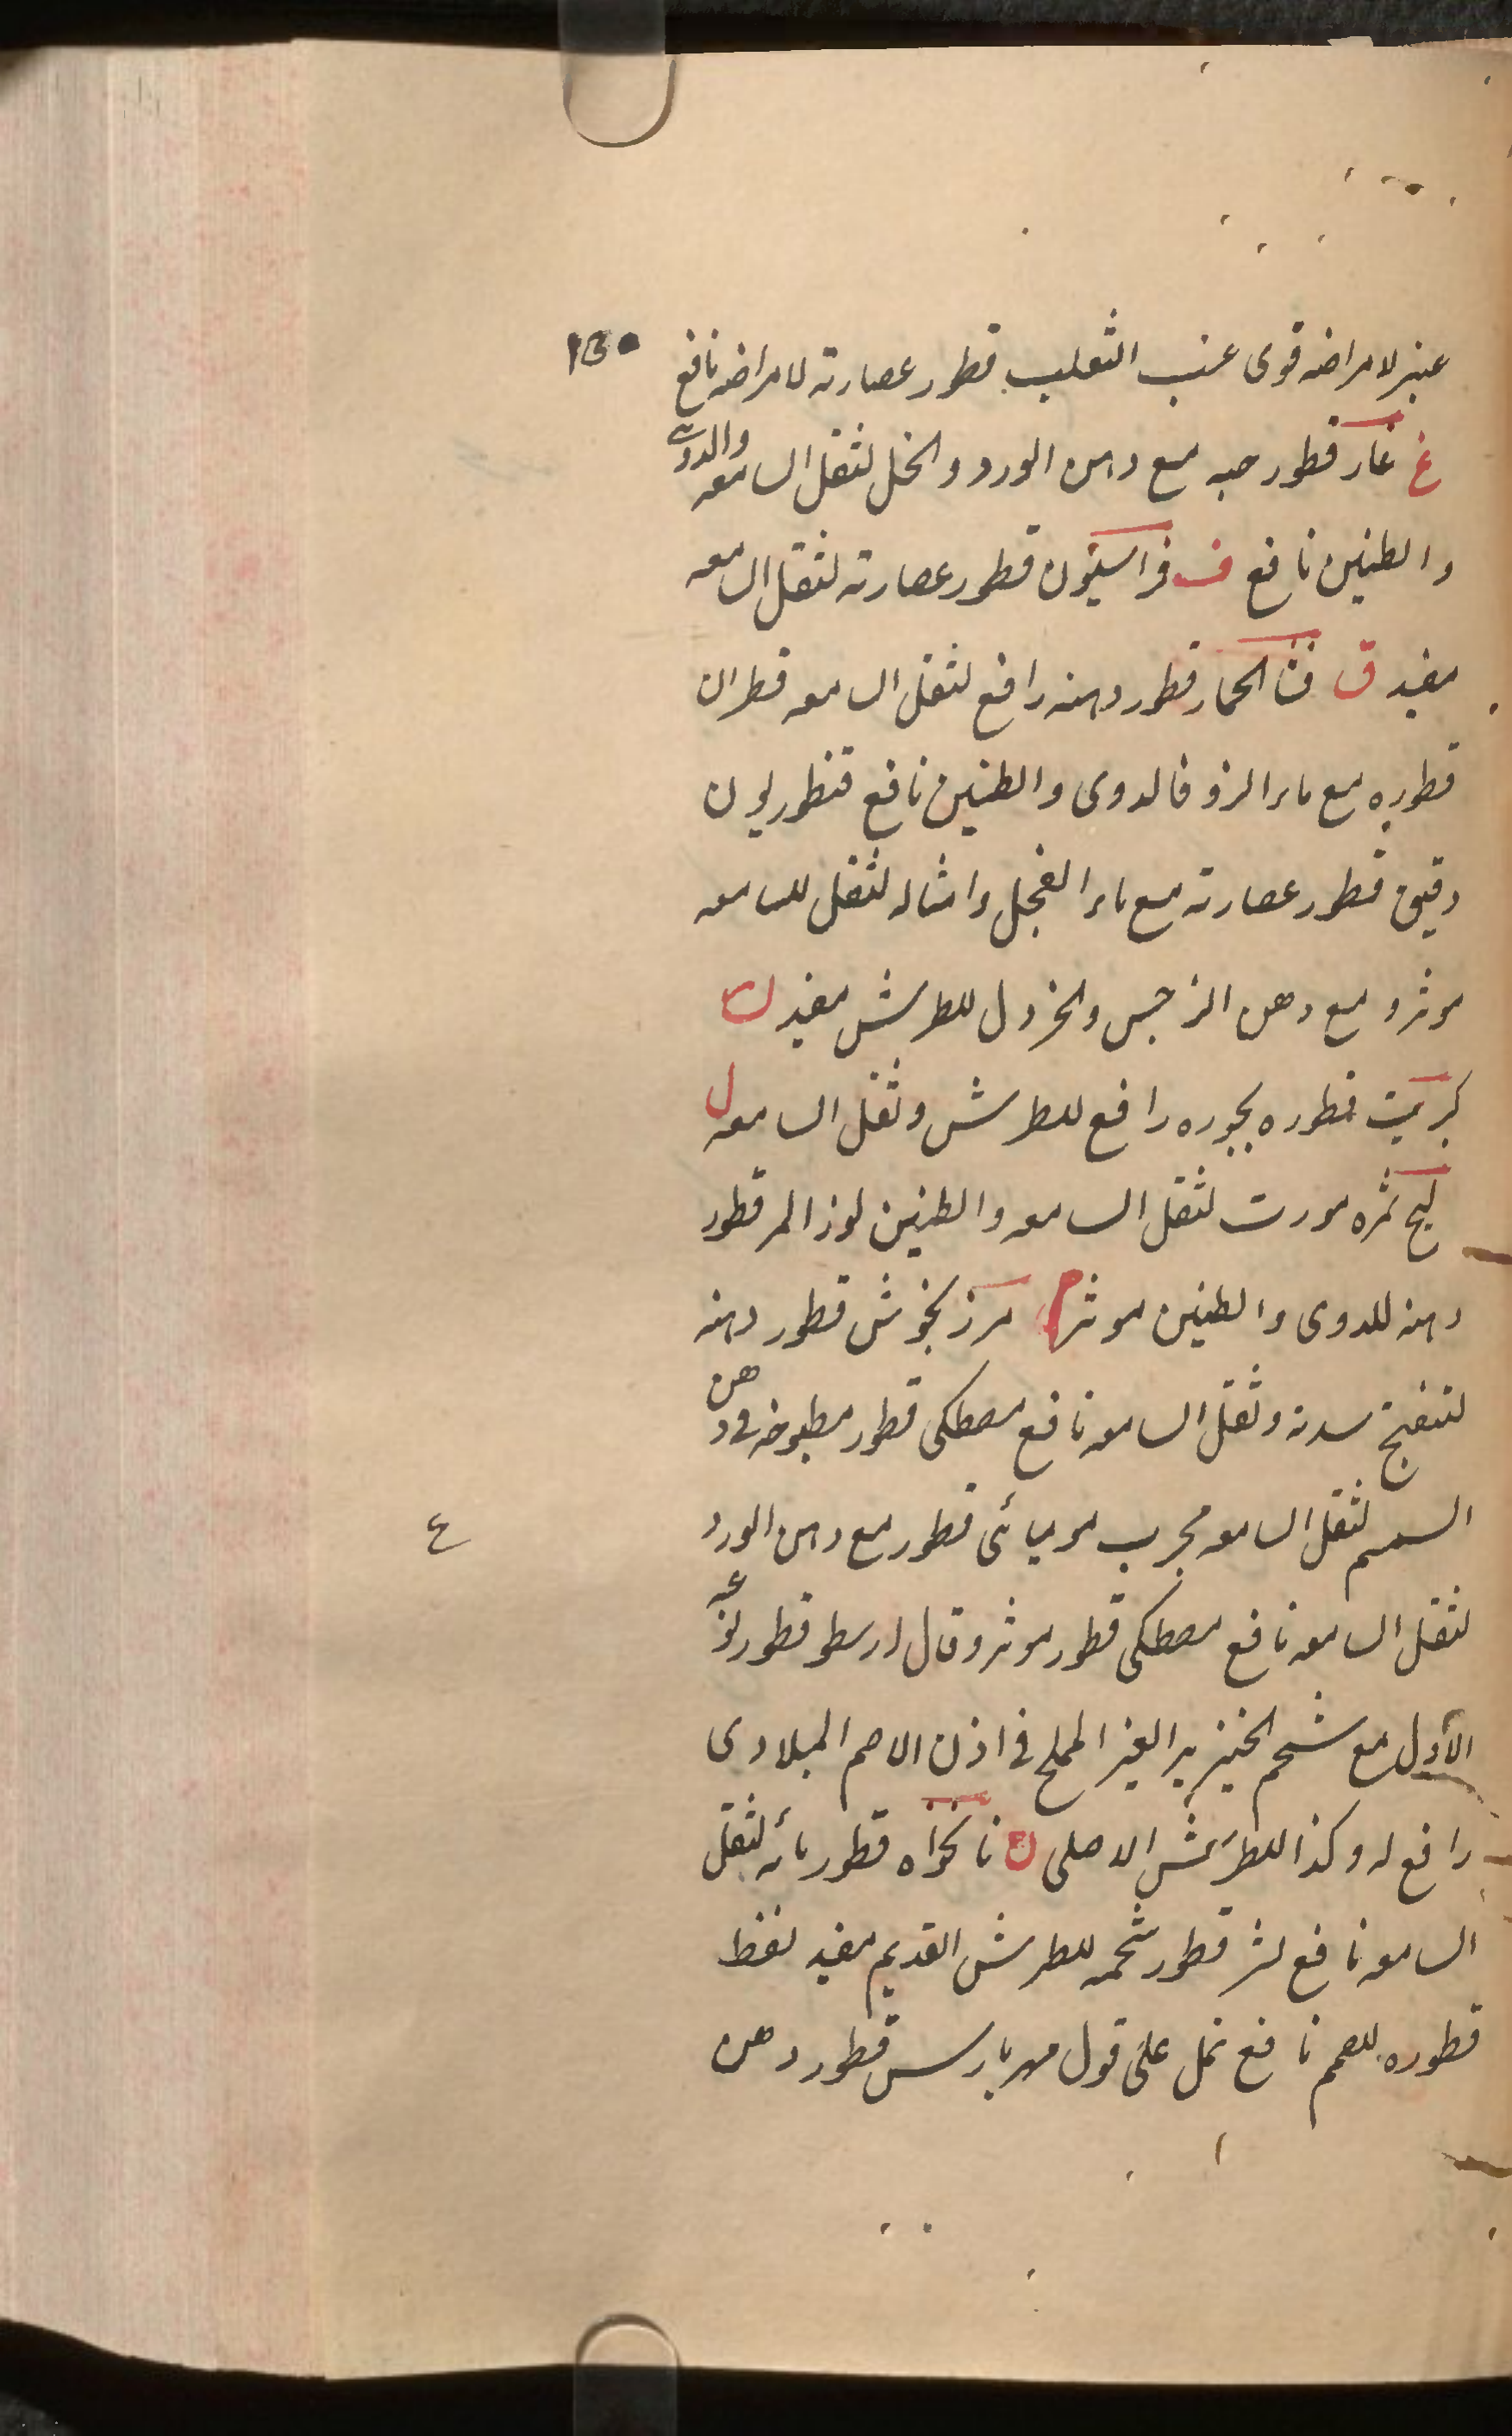 ١٥٠
عنبر لامراضه قوى عنب الثعلب قطور عصارته لامراضه نافع
غ غار قطور حبه مع دهن الورد والخل لثقل السامعه والدوى
والطنين نافع ف فراسيون قطور عصارته لثقل السامعه
مفيد ق قثا الحمار قطور دهنه رافع لثقل السامعه قطران
قطوره مع ماء الزوفا لدوى والطنين نافع قنطوريون
دقيق قطور عصارته مع ماء الفجل وامثاله لثقل للسامعه
موثر و مع دهن النرجس والخردل للطرش مفيد ك
كبريت قطوره بخوره رافع للطرش وثقل السامعه ل
لبخ ثمره مورث لثقل السامعه والطنين لوز المر قطور
دهنه للدوى والطنين موثر م مرزنجوش قطور دهنه
لتفتيح سدته وثقل السامعه نافع مصطكى قطور مطبوخه فى دهن
السمسم لثقل السامعه مجرب موميائى قطور مع دهن الورد
لثقل السامعه نافع مصطكى قطور موثر وقال ارسطو قطور نوعه
الاول مع شحم الخنزير الغير المملح فى اذن الاصم الميلادى
رافع له وكذا للطرش الاصلى ن نانخواه قطور مائه لثقل
السامعه نافع نسر قطور شحمه للطرش القديم مفيد نفط
قطوره للصمم نافع نمل على قول مهربارس قطور دهن
ع